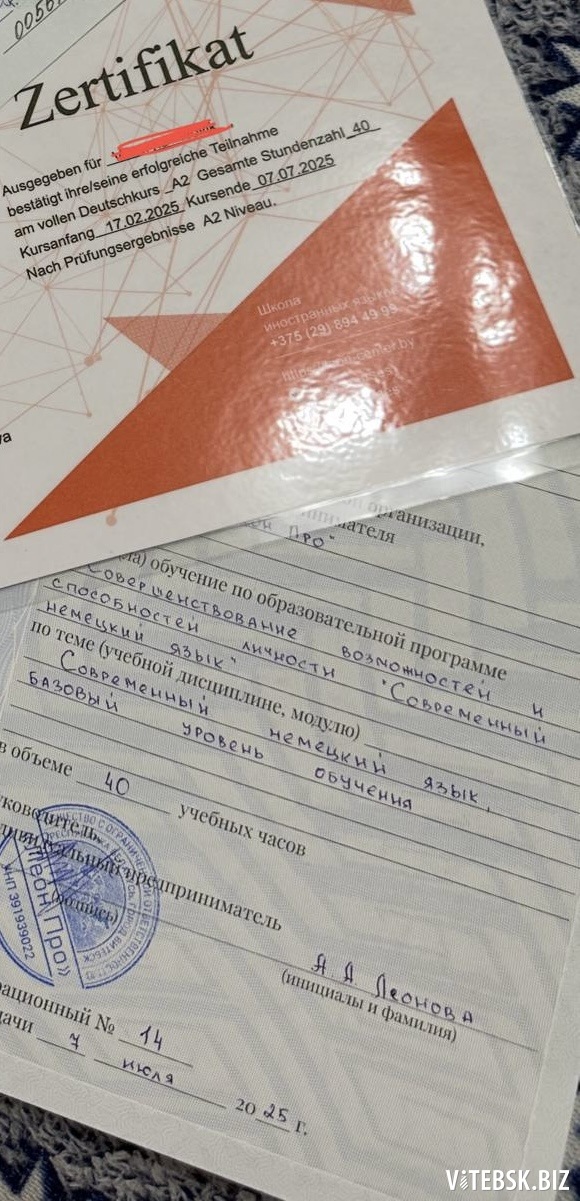 Zertifikat
Ausgegeben für
bestätigt ihre/seine erfolgreiche Teilnahme
am vollen Deutschkurs A2 Gesamte Stundenzahl 40
Kursanfang 17.02.2025 Kursende 07.07.2025
Nach Prüfungsergebnisse A2 Niveau.
Школа
иностранных языков
+375 (29) 894 49 99
организации,
ПРО"
обучение по образовательной программе
Совершенствование возможностей и
способностей личности "Современный
немецкий язык"
по теме (учебной дисциплине, модулю)
Современный немецкий язык,
базовый уровень обучения
в объеме 40 учебных часов
предприниматель
(подпись)
Леон Про»
УНП 391939022
А Д Леонова
(инициалы и фамилия)
№ 14
7 июля 2025 г.
VITEBSK.BIZ